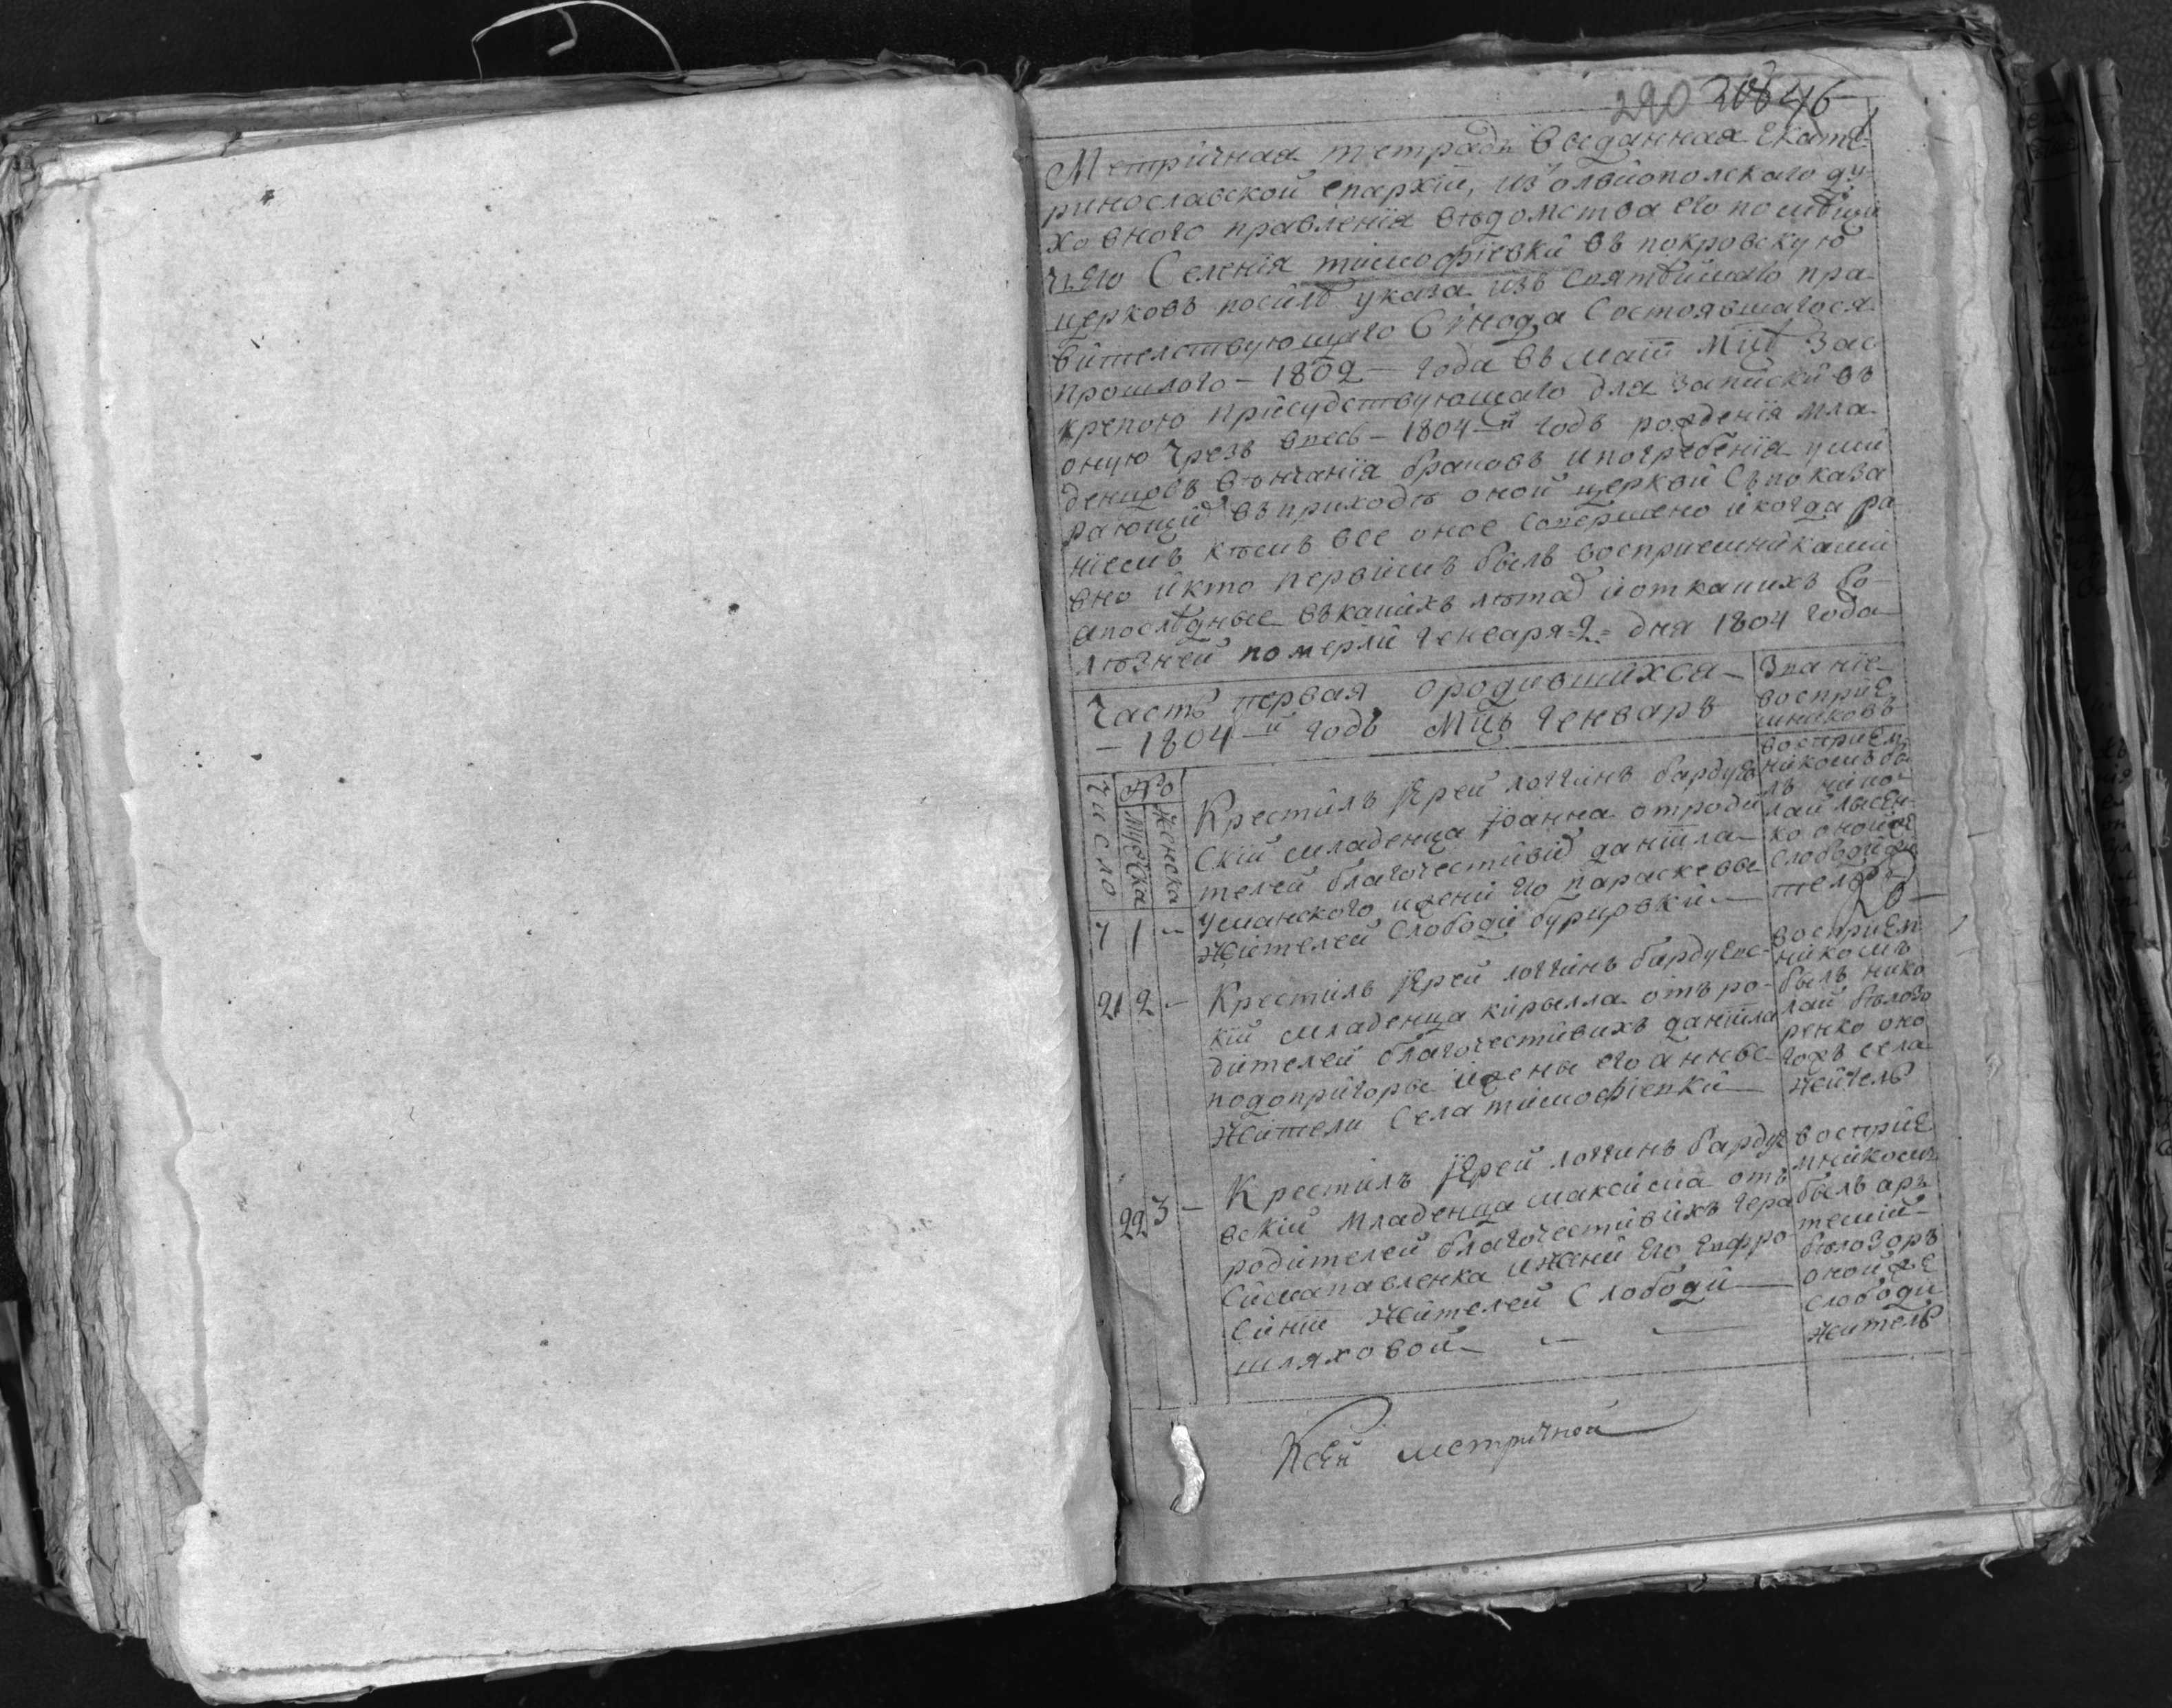 290
Метричная тетрадь вседанная Екате
ринославской Епархіи, из олвиополского ду
ховного правленія вѣдомства его помѣщи
чяго Селенія тимофіевки въ покровскую
церковъ посилѣ указа изъ Святѣйшаго пра
вителствующаго Синода Состоявшагося
прошлого - 1802 - года въ маіи мцѣ зас
крепою присудствующаго для записки въ
оную чрезъ весь - 1804-й годъ рожденія мла
денцовъ вѣнчанія браковъ ипогребенія уми
рающий въприходѣ оной церкви Съпоказа
ніемъ кѣмъ все оное Совершено икогда ра
вно икто первимъ былъ восприемниками
апослѣдные вѣкакихъ лѣтад иоткакихъ бо
лѣзней померли Генваря=2= дня 1804 года
Часть первая ородившихся
- 1804-й годъ Мцъ Генваръ
Званіе
восприе
мниковъ
Число
№
Мужеска
Женска
7 1 -
Крестилъ Іерей логгинъ бардуев
Скій младенца Іоанна отроди
телей благочестивій даніила
Уманского иженй его параскевы
Жителей Слободи бурировки
восприем
никомъ бы
лъ нико
лай лысен
ко оной же
Слободи жи
телъ
21 2 -
Крестилъ Іерей логгинъ бардуевс
кій младенца кирылла отъ ро
дителей благочестивихъ даніила
подопригоры ижены его анны
Жители Села тимофіевки
восприем
никомъ
былъ нико
лай бѣлозо
ренко оно
гожъ села
Жителъ
22 3 -
Крестилъ Іерей логгинъ бардуе
вскій младенца максима отъ
родителей благочестивихъ гера
Симапавленка ижени Его Ефро
Синіи Жителей Слободи
шляховой
восприе
мникомъ
былъ ар
темій
бѣлозоръ
оной же
слободи
Жителъ
Ксей метричной